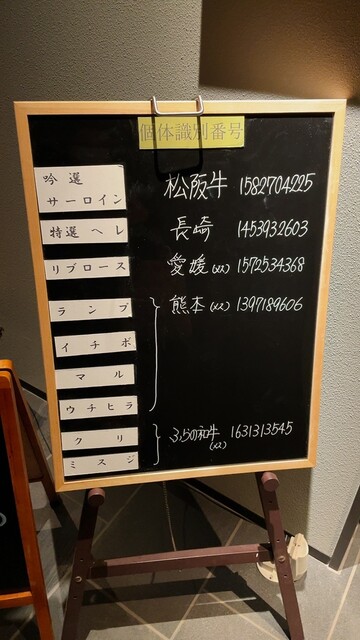 個体識別番号
吟選
サーロイン
松阪牛 1582704225
特選ヘレ
長崎 1453932603
リブロース
愛媛(メス) 1572534368
ランプ
熊本(メス) 1397189606
イチボ
マル
ウチヒラ
クリ
ふらの和牛 1631313545
(メス)
ミスジ